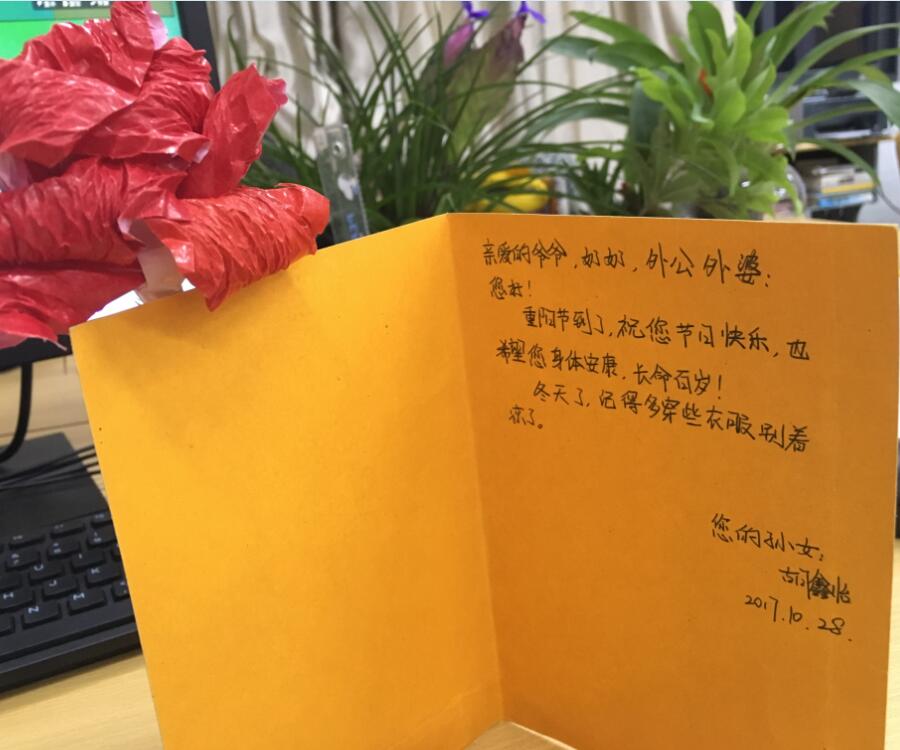 亲爱的爷爷，奶奶，外公外婆：
您好！
重阳节到了，祝您节日快乐，也
希望您身体安康，长命百岁！
冬天了，记得多穿些衣服别着
凉了。
您的孙女：
胡鑫怡
2017.10.28.